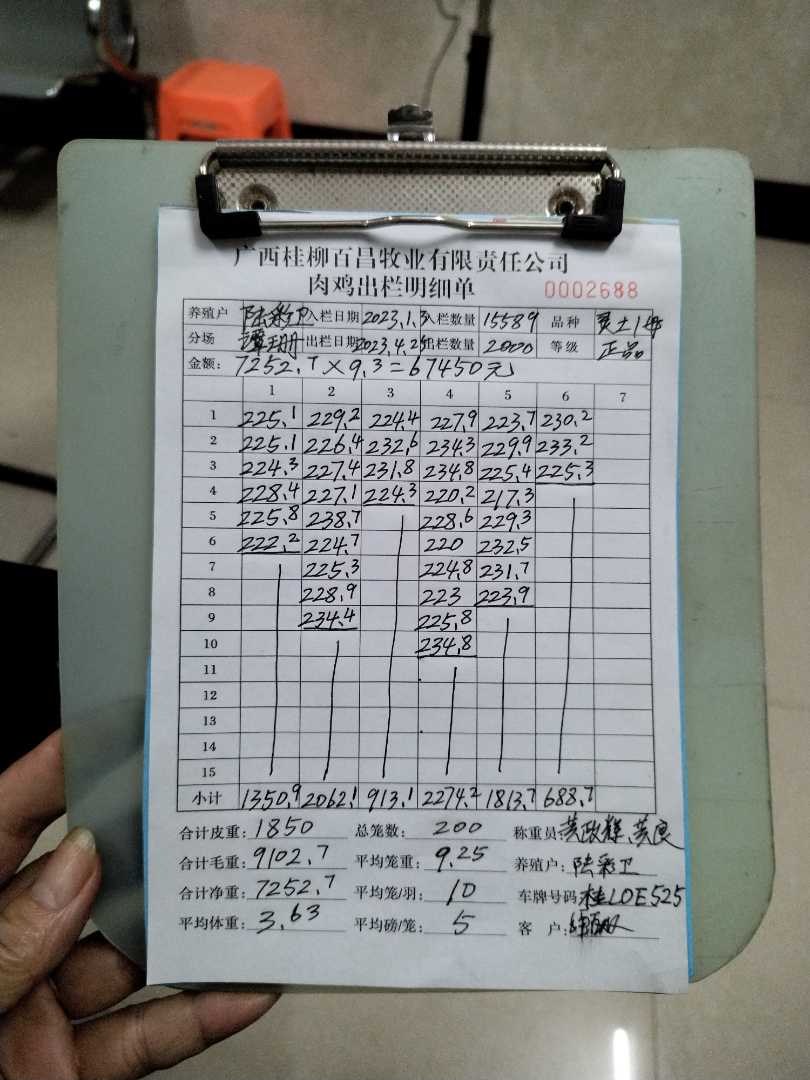 广西桂柳百昌牧业有限责任公司
肉鸡出栏明细单 0002688
养殖户 陆彩卫 入栏日期 2023.1.3 入栏数量 15589 品种 灵土1母
分场 谭玉册 出栏日期 2023.4.25 出栏数量 2000 等级 正品
金额: 7252.7×9.3=67450元
1 2 3 4 5 6 7
1 225.1 229.2 224.4 227.9 223.7 230.2
2 225.1 226.4 232.6 234.3 229.9 233.2
3 224.3 227.4 231.8 234.8 225.4 225.3
4 228.4 227.1 224.3 220.2 217.3
5 225.8 238.7 228.6 229.3
6 222.2 224.7 220 232.5
7 225.3 224.8 231.7
8 228.9 223 223.9
9 234.4 225.8
10 234.8
11
12
13
14
15
小计 1350.9 2062.1 913.1 2274.2 1813.7 688.7
合计皮重: 1850 总笼数: 200 称重员: 黄政辉、黄良
合计毛重: 9102.7 平均笼重: 9.25 养殖户: 陆彩卫
合计净重: 7252.7 平均笼/羽: 10 车牌号码: 桂LOE525
平均体重: 3.63 平均磅/笼: 5 客户: